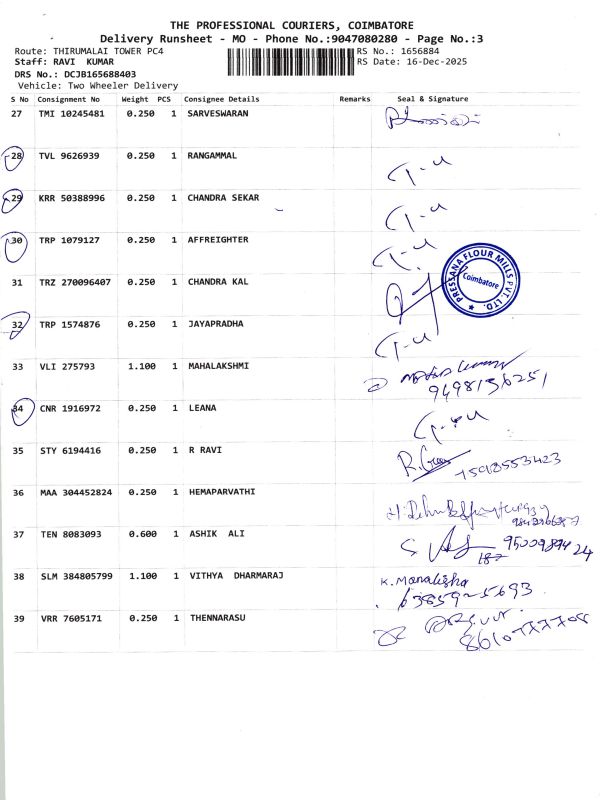 THE PROFESSIONAL COURIERS, COIMBATORE
Delivery Runsheet - MO - Phone No.:9047080280 - Page No.:3
Route: THIRUMALAI TOWER PC4 RS No.: 1656884
Staff: RAVI KUMAR RS Date: 16-Dec-2025
DRS No.: DCJB165688403
Vehicle: Two Wheeler Delivery
S No Consignment No Weight PCS Consignee Details Remarks Seal & Signature
27 TMI 10245481 0.250 1 SARVESWARAN
28 TVL 9626939 0.250 1 RANGAMMAL
29 KRR 50388996 0.250 1 CHANDRA SEKAR
30 TRP 1079127 0.250 1 AFFREIGHTER
PRESSANA FLOUR MILLS PVT. LTD. Coimbatore
31 TRZ 270096407 0.250 1 CHANDRA KAL
32 TRP 1574876 0.250 1 JAYAPRADHA
33 VLI 275793 1.100 1 MAHALAKSHMI
9498136251
34 CNR 1916972 0.250 1 LEANA
35 STY 6194416 0.250 1 R RAVI
36 MAA 304452824 0.250 1 HEMAPARVATHI
37 TEN 8083093 0.600 1 ASHIK ALI
38 SLM 384805799 1.100 1 VITHYA DHARMARAJ K. Manalisha
39 VRR 7605171 0.250 1 THENNARASU